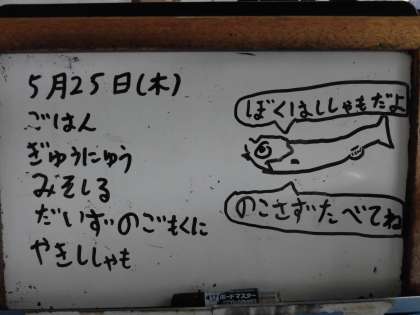 5月25日(木)
ごはん
ぎゅうにゅう
みそしる
だいずのごもくに
やきししゃも
ぼくはししゃもだよ
のこさずたべてね
ボードマスター